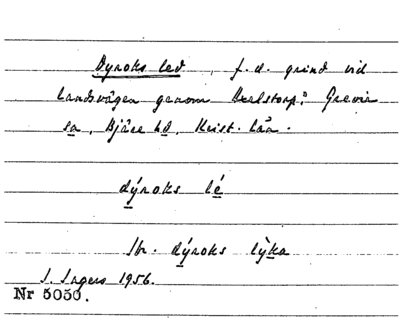 Dyroks led, f.d. grind vid
landsvägen genom Axelstorp: Grevie
sn, Bjäre hd, Krist. län.
dýroks lé
Jbr. dýroks lýka
J. Ingers 1956.
Nr 5050.